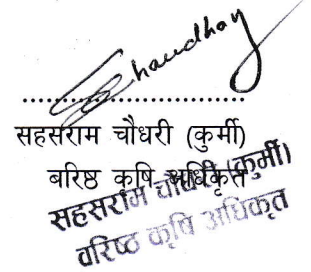 Chaudhary
सहसराम चौधरी (कुर्मी)
बरिष्ठ कृषि अधिकृत
सहसराम चौधरी (कुर्मी)
वरिष्ठ कृषि अधिकृत